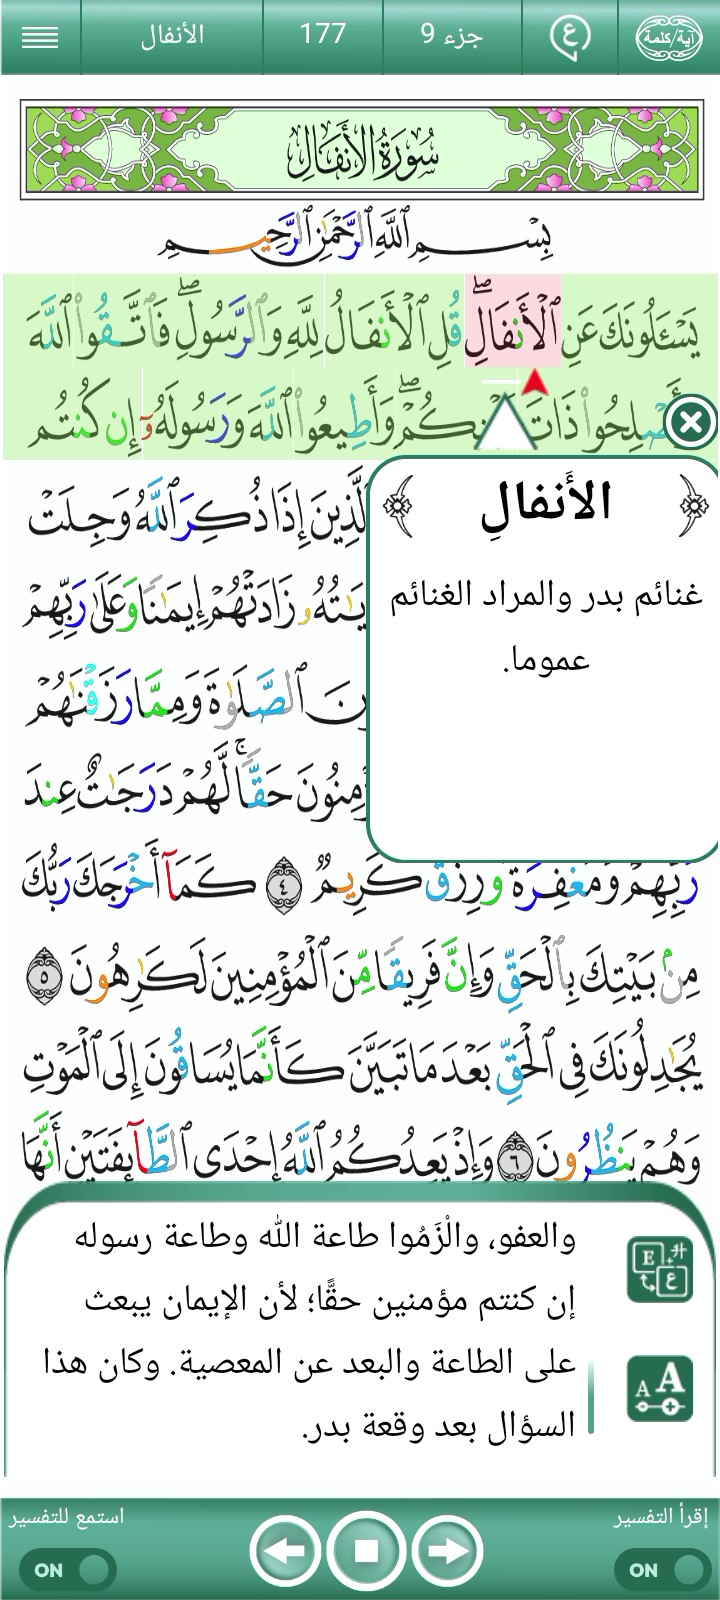 آية/كلمة
ع
جزء 9
177
الأنفال
سُورَةُ الأَنفَالِ
بِسْمِ ٱللَّهِ ٱلرَّحْمَٰنِ ٱلرَّحِيمِ
يَسْـَٔلُونَكَ عَنِ ٱلْأَنفَالِۖ قُلِ ٱلْأَنفَالُ لِلَّهِ وَٱلرَّسُولِۖ فَٱتَّقُوا۟ ٱللَّهَ
صْلِحُوا۟ ذَاتَ نِكُمْۖ وَأَطِيعُوا۟ ٱللَّهَ وَرَسُولَهُۥٓ إِن كُنتُم
لَّذِينَ إِذَا ذُكِرَ ٱللَّهُ وَجِلَتْ
يَٰتُهُۥ زَادَتْهُمْ إِيمَٰنًا وَعَلَىٰ رَبِّهِمْ
ونَ ٱلصَّلَوٰةَ وَمِمَّا رَزَقْنَٰهُمْ
ؤْمِنُونَ حَقًّاۚ لَّهُمْ دَرَجَٰتٌ عِندَ
رَبِّهِمْ وَمَغْفِرَةٌ وَرِزْقٌ كَرِيمٌ ٤ كَمَآ أَخْرَجَكَ رَبُّكَ
مِنۢ بَيْتِكَ بِٱلْحَقِّ وَإِنَّ فَرِيقًا مِّنَ ٱلْمُؤْمِنِينَ لَكَٰرِهُونَ ٥
يُجَٰدِلُونَكَ فِى ٱلْحَقِّ بَعْدَ مَا تَبَيَّنَ كَأَنَّمَا يُسَاقُونَ إِلَى ٱلْمَوْتِ
وَهُمْ يَنظُرُونَ ٦ وَإِذْ يَعِدُكُمُ ٱللَّهُ إِحْدَى ٱلطَّآئِفَتَيْنِ أَنَّهَا
الأَنفالِ
غنائم بدر والمراد الغنائم
عموما.
والعفو، والْزَمُوا طاعة الله وطاعة رسوله
إن كنتم مؤمنين حقًّا؛ لأن الإيمان يبعث
على الطاعة والبعد عن المعصية. وكان هذا
السؤال بعد وقعة بدر.
E
ع
A A
إقرأ التفسير
استمع للتفسير
ON
ON